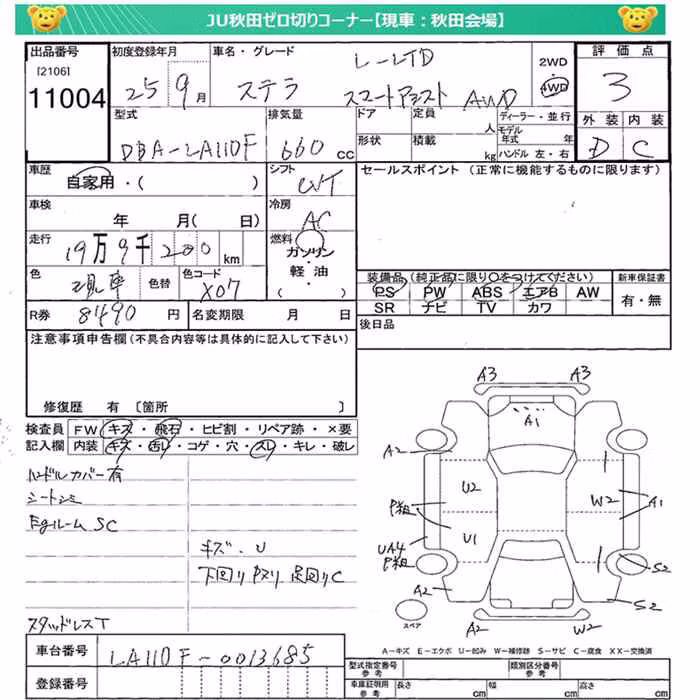 JU秋田ゼロ切りコーナー【現車：秋田会場】
出品番号 初度登録年月 車名・グレード 2WD 評価点
[2106] L-LTD 4WD
11004 25 9月 ステラ スマートアシスト AWD 3
型式 排気量 ドア 定員 人 ディーラー・並行 外装 内装
モデル年式 年
DBA-LA110F 660 CC 形状 積載 kg ハンドル 左・右 D C
車歴 シフト セールスポイント (正常に機能するものに限ります)
自家用・( ) CVT
車検 冷房
年 月( 日) AC
走行 19万9千200km 燃料 ガソリン・軽・油・( )
色 現車 色替 色コード X07
装備品(純正品に限り○をつけてください) 新車保証書
PS PW ABS エアB AW 有・無
SR ナビ TV カワ
R券 8490 円 名変期限 月 日 後日品
注意事項申告欄(不具合内容等は具体的に記入して下さい)
修復歴 有 [箇所 ]
検査員 FW キズ・飛石・ヒビ割・リペア跡・×要
記入欄 内装 キズ・汚レ・コゲ・穴・スレ・キレ・破レ
ハンドルカバー有
シートシミ
Egルーム SC
キズ・U
下回りサビ 足回りC
スタッドレスT
A3 A3
A1
A2
U2 W2 A1
P粗
U1
UA4
P粗 S2
A2 S2
スペア A2 W2
A－キズ E－エクボ U－凹み W－補修跡 S－サビ C－腐食 XX－交換済
車台番号 LA110F-0013685
型式指定番号 参考 類別区分番号 参考
登録番号 車庫証明用 参考 長さ cm 幅 cm 高さ cm